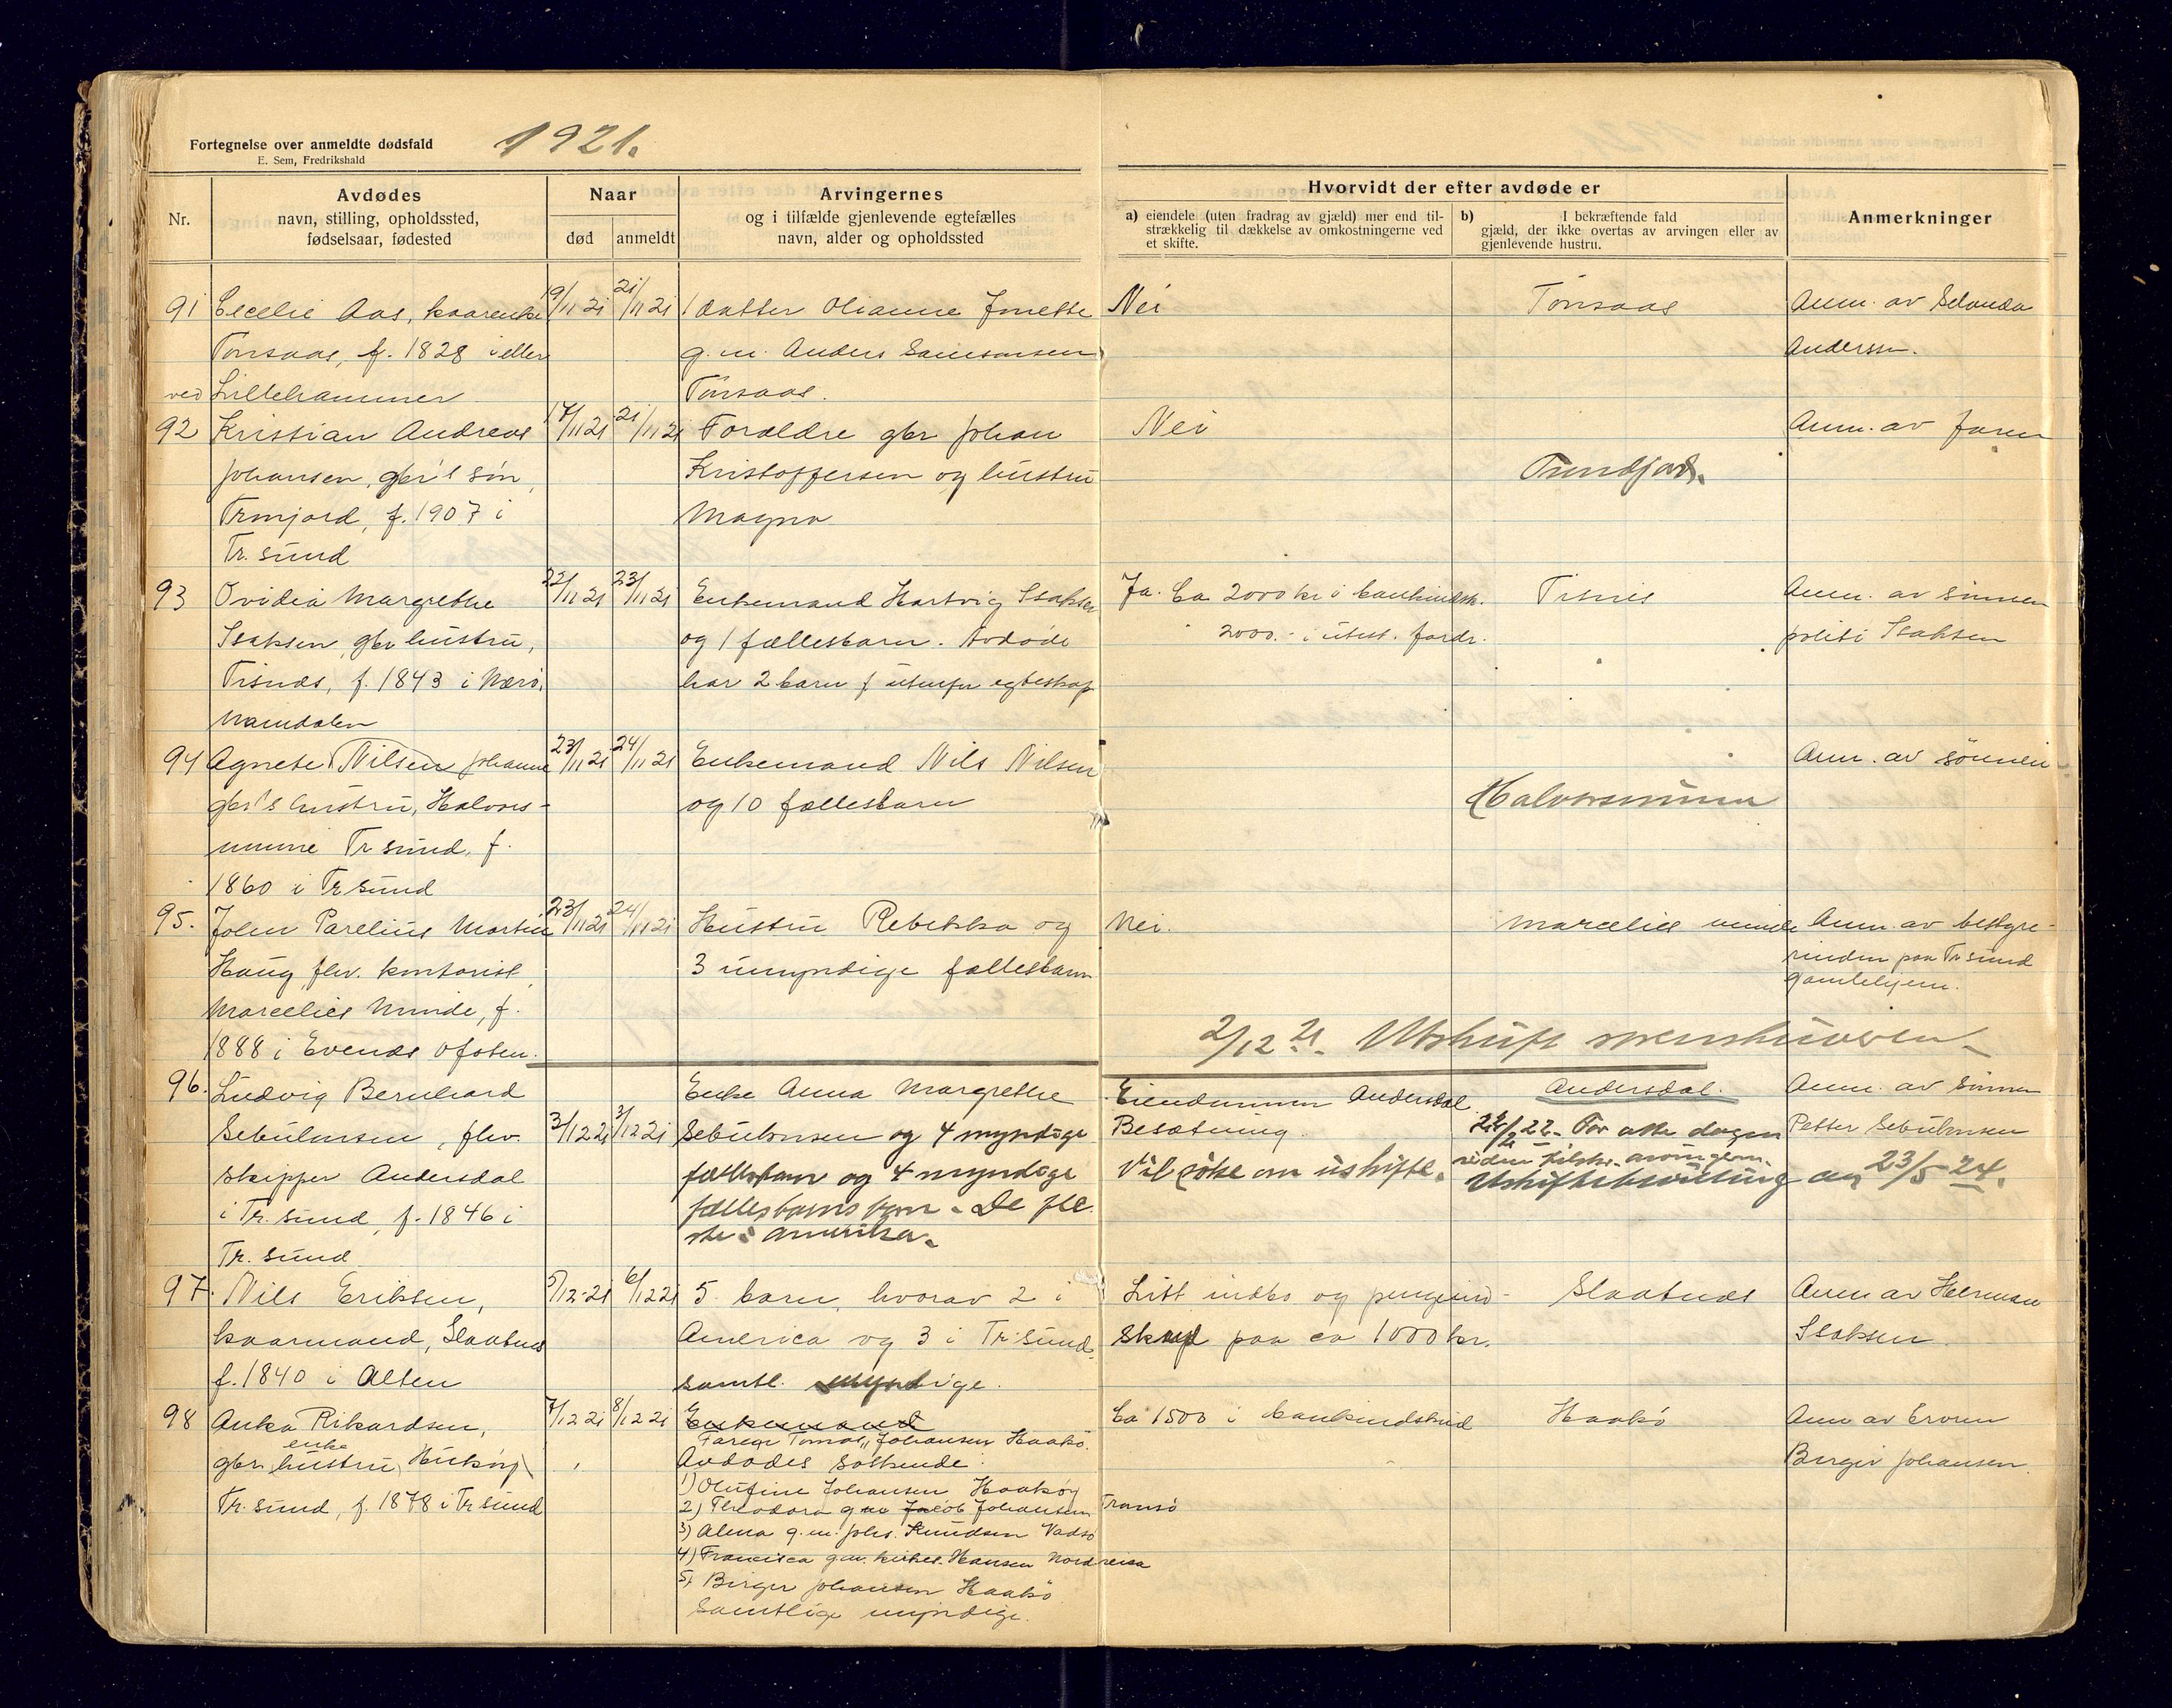 Fortegnelse over anmeldte dødsfald
E. Sem, Fredrikshald
1921.
Nr.
Avdødes
navn, stilling, opholdssted,
fødselsaar, fødested
Naar
død
anmeldt
Arvingernes
og i tilfælde gjenlevende egtefælles
navn, alder og opholdssted
Hvorvidt der efter avdøde er
a) eiendele (uten fradrag av gjæld) mer end til-
strækkelig til dækkelse av omkostningerne ved
et skifte.
b) I bekræftende fald
gjæld, der ikke overtas av arvingen eller av
gjenlevende hustru.
Anmerkninger
91 Cecelie Aas, kaarenke
Tønsaas, f. 1828 i eller
ved Lillehammer
19/11 21
21/11 21
1 datter Olianne Jonette
g. m. Anders Samsonsen
Tønsaas.
Nei
Tønsaas
Anm. av
Anderssen.
92 Kristian Andreas
Johansen, gbr's søn,
f. 1907 i
Tr.sund
17/11 21
21/11 21
Forældre gbr Johan
Kristoffersen og hustru
Magna
Nei
Anm. av faren
93 Ovidia Margrethe
Isaksen, gbr hustru,
Tisnes, f. 1843 i Nærø,
Namdalen
22/11 21
23/11 21
Enkemand Hartvig Isaksen
og 1 fællesbarn. Avdøde
har 2 barn f utenfor egteskap
Ja. Ca 2000 kr i bankindsk.
" 2000.- i utest. fordr.
Tisnes
Anm. av sønnen
politi Isaksen
94 Agnete Nilsen Johanne
gbr's hustru, Halvors-
Tr sund, f.
1860 i Tr sund
23/11 21
24/11 21
Enkemand Nils Nilsen
og 10 fællesbarn
Anm. av sønnen
95. John Parelius Martin
Haug, fhv. kontorist,
Marcelies Minde, f.
1888 i Evenes Ofoten.
23/11 21
24/11 21
Hustru Rebekka og
3 umyndige fællesbarn
Nei.
Marcelies minde
Anm. av bestyre-
rinden paa Tr sund
gamlehjem.
2/12 21. Utskrift
96. Ludvig Bernhard
Sebulonsen, fhv.
skipper Andersdal
i Tr. sund, f. 1846 i
Tr. sund
3/12 21
3/12 21
Enke Anna Margrethe
Sebulonsen og 4 myndige
fællesbarn og 4 myndige
fællesbarns barn. De fle
ste i Amerika.
Eiendommen Andersdal.
Besætning.
Vil søke om uskifte.
Andersdal.
Uskiftebevilling av 23/5 24.
Anm. av sønnen
Petter Sebulonsen
97. Nils Eriksen,
kaarmand, Slaatnes
f. 1840 i Alten
5/12-21
6/12 21
5 barn, hvorav 2 i
America og 3 i Tr. sund,
samtl. myndige.
Litt indbo og pengeind-
skud paa ca 1000 kr.
Slaatnes
Anm av Herman
Isaksen
98 Anka Rikardsen,
enke
gbr. hustru,
Tr. sund, f. 1878 i Tr sund
7/12 21
8/12 21
Enkemand
Johansen Haakø.
Avdødes søskende:
1) Olufine Johansen Haakøy
2) Theodora g av Jacob Johansen Tromsø
3) Alma g. m. Johs. Knudsen Vadsø
4) Francisca g.m. Hansen Nordreisa
5) Birger Johansen Haakø
Samtlige myndige.
Ca 1500 i bankindskud
Haakø
Anm av broren
Birger Johansen.